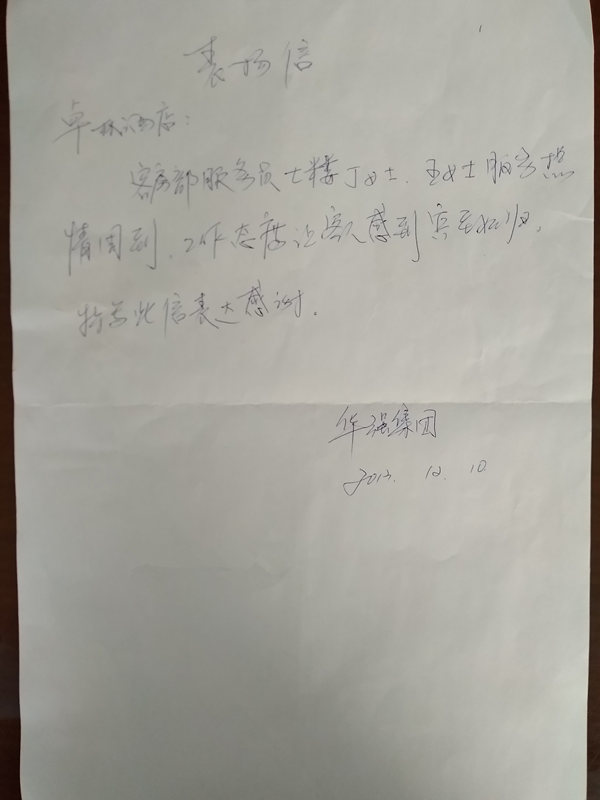 表扬信
卓林酒店：
客房部服务员七楼丁女士、王女士服务热
情周到，工作态度让客人感到宾至如归，
特写此信表达感谢。
华强集团
2013. 12. 10